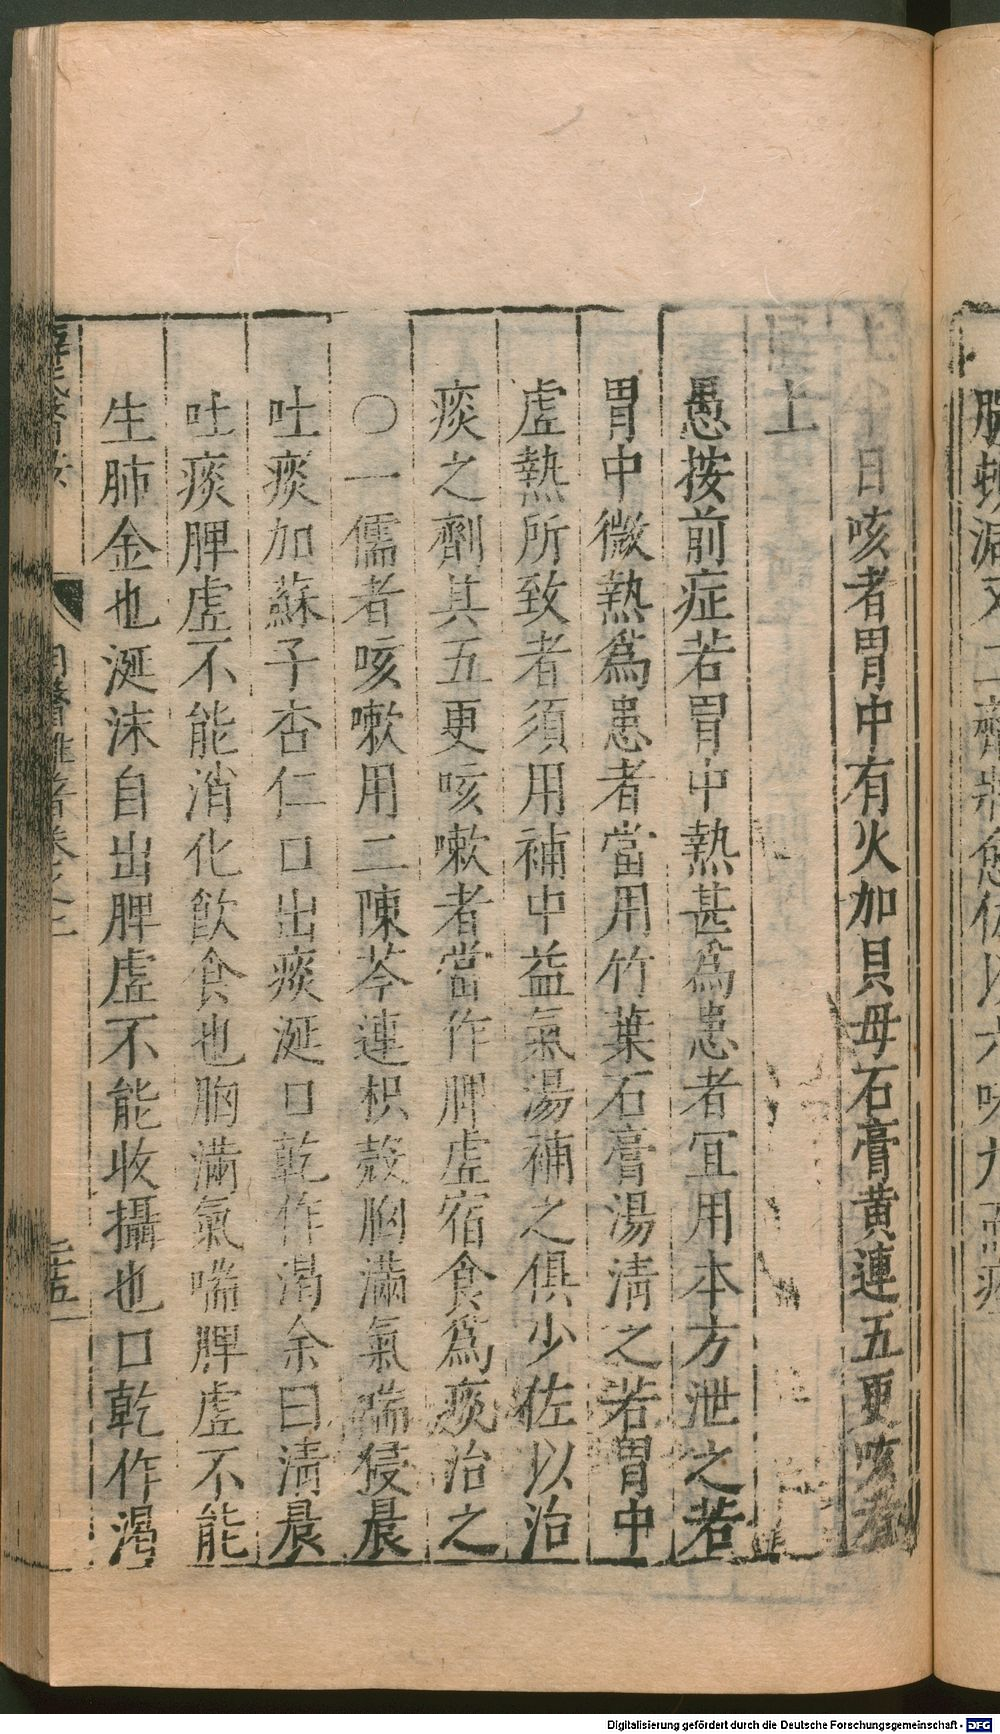 上午日咳者胃中有火加貝母石膏黄連五更咳者
上
愚按前症若胃中熱甚爲患者宜用本方泄之若
胃中微熱爲患者當用竹葉石膏湯清之若胃中
虚熱所致者須用補中益氣湯補之俱少佐以治
痰之劑其五更咳嗽者當作脾虚宿食爲痰治之
〇一儒者咳嗽用二陳芩連枳殻胸滿氣喘侵晨
吐痰加蘇子杏仁口出痰涎口乾作渴余曰清晨
吐痰脾虚不能消化飲食也胸滿氣喘脾虚不能
生肺金也涎沫自出脾虚不能收攝也口乾作渴
薛氏醫按
明醫雜著卷之二
二十五
Digitalisierung gefördert durch die Deutsche Forschungsgemeinschaft - DFG